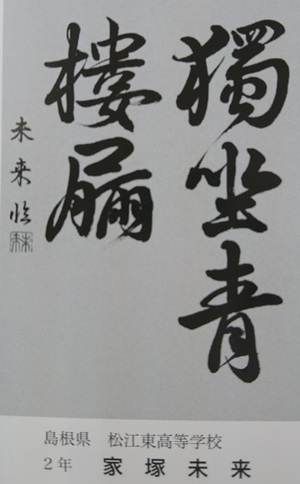 獨坐青
樓
未来臨
島根県 松江東高等学校
2年 家塚未来